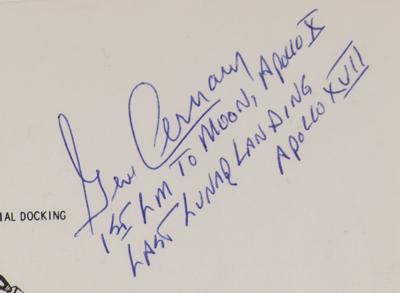 Gene Cernan
1ST LM TO MOON, APOLLO X
LAST LUNAR LANDING
APOLLO XVII
IAL DOCKING